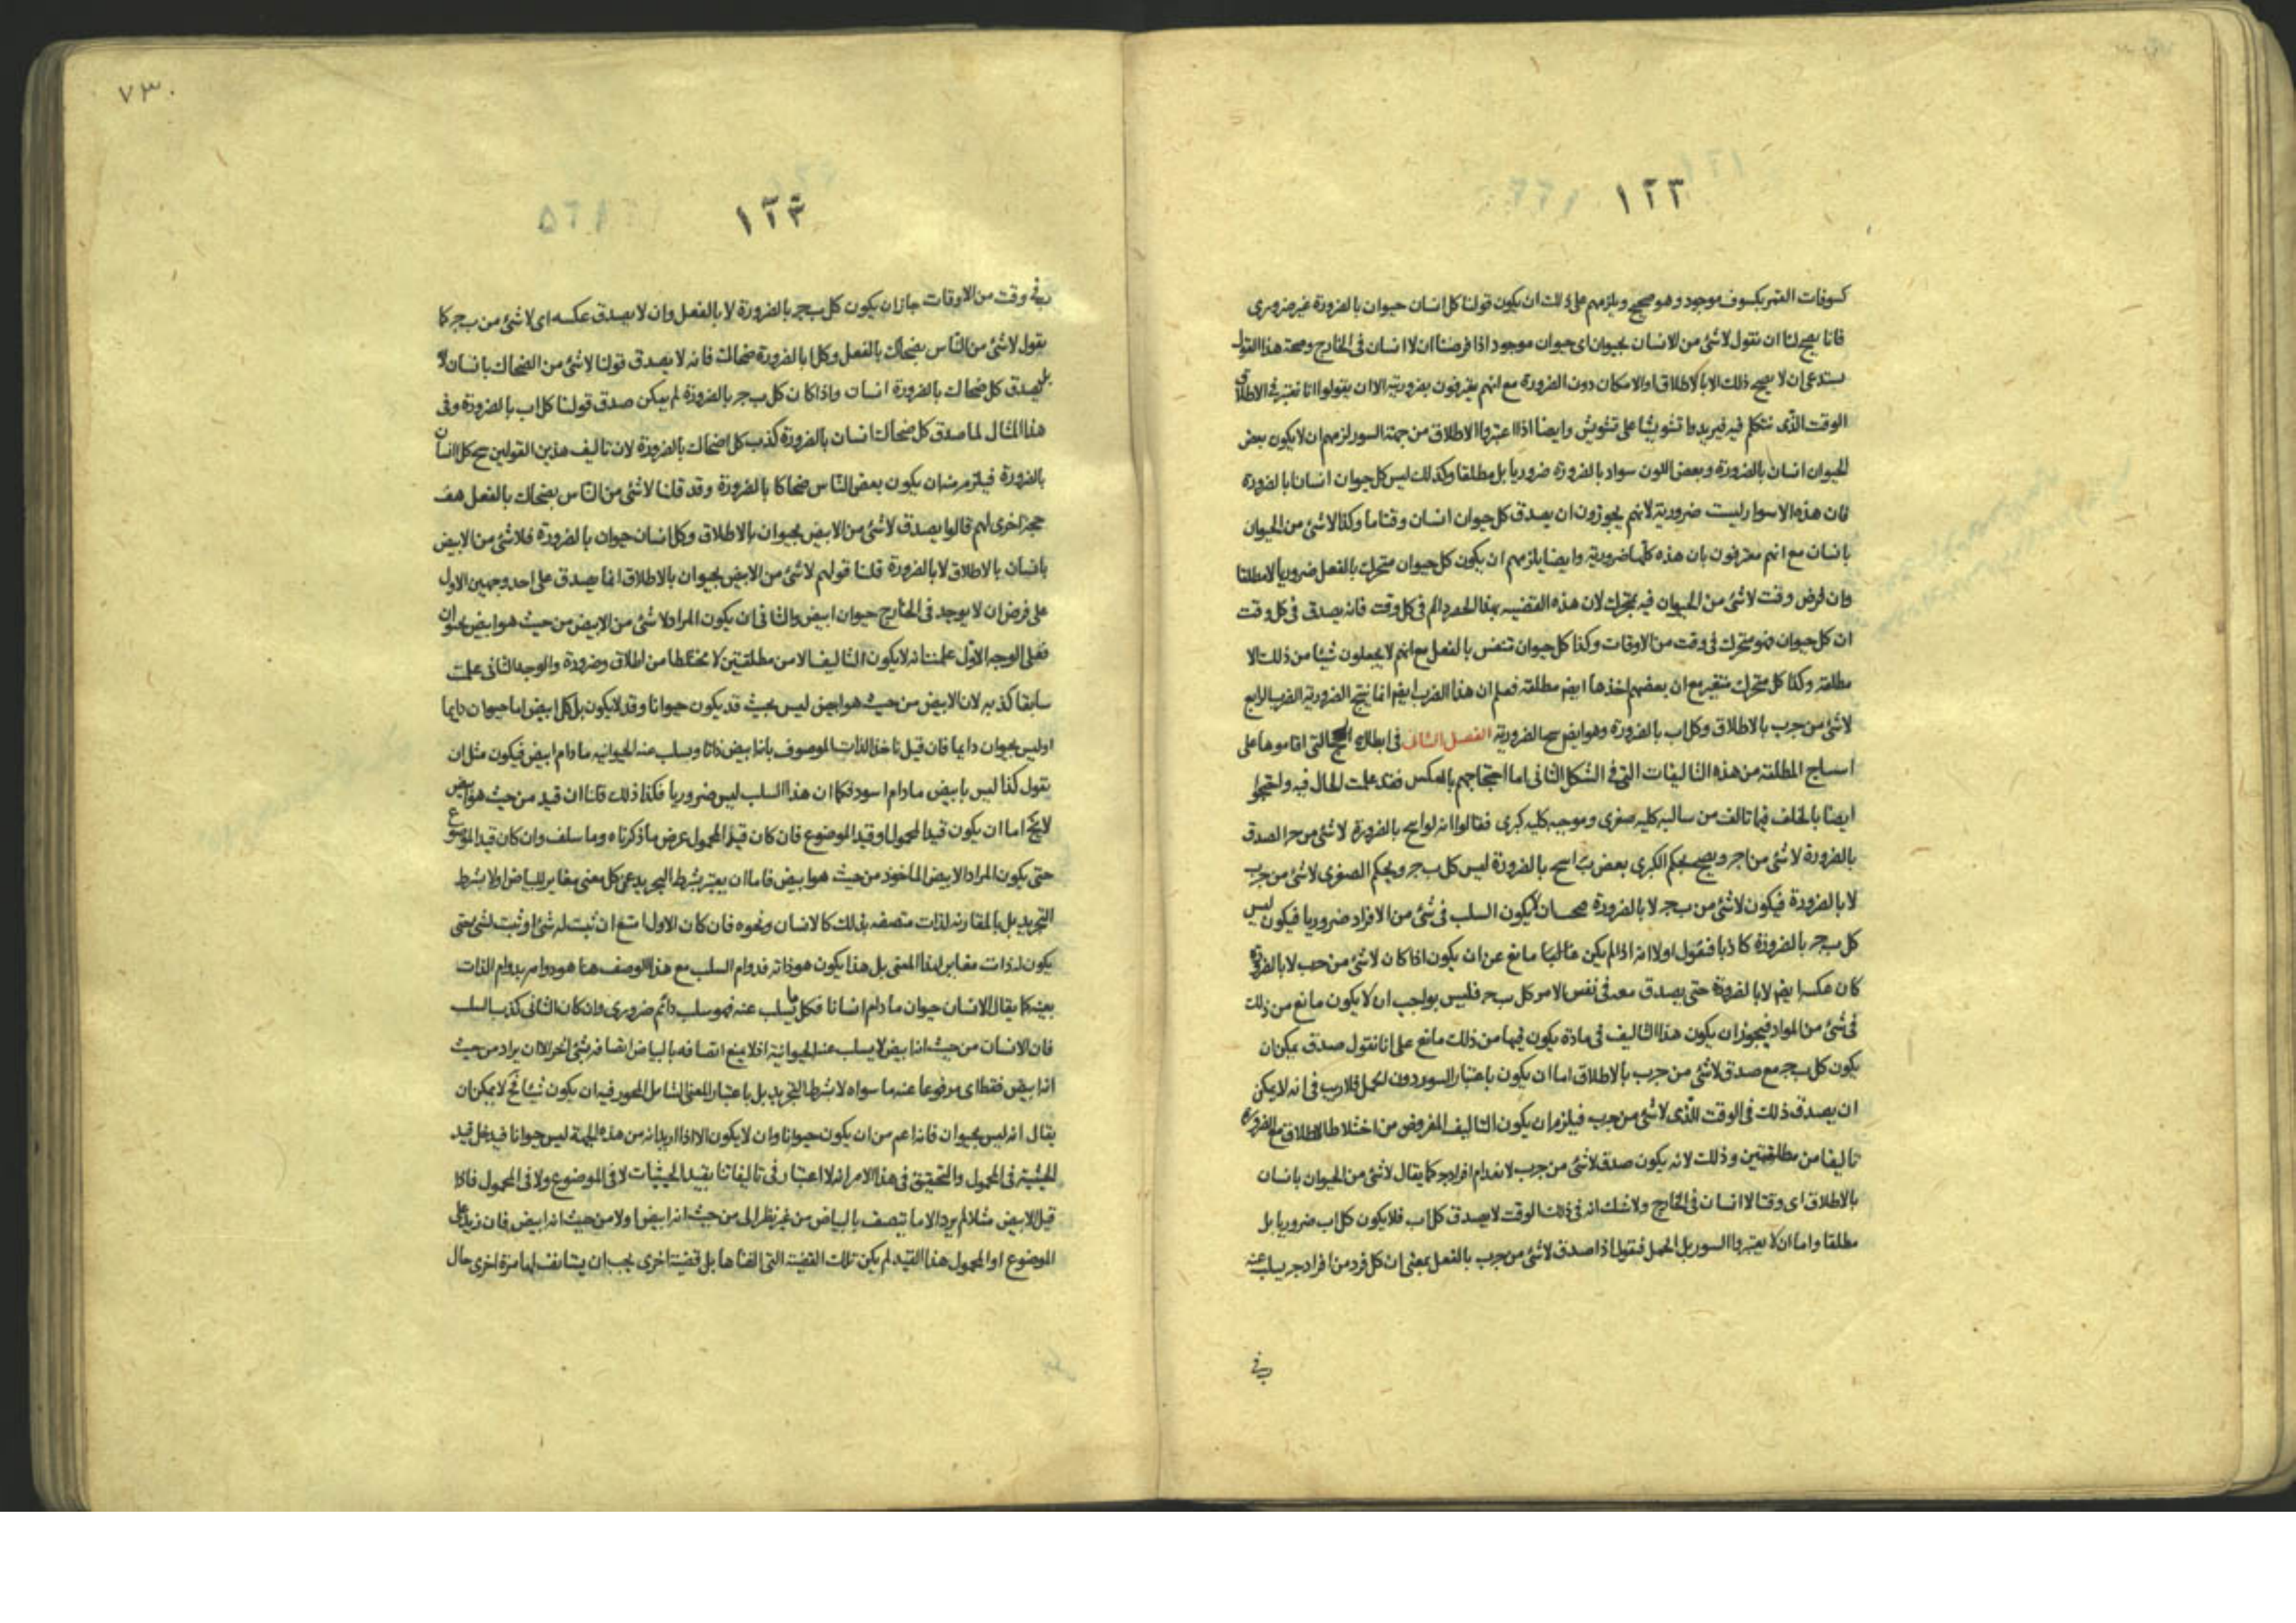 ١٢٣
كسوفات القمر بكسوف موجود وهو صحيح ويلزمهم على ذلك ان يكون قولنا كل انسان حيوان بالضرورة غير ضروري
فانا يصح لنا ان نقول لا شئ من الانسان بحيوان اى حيوان موجود اذا فرضنا ان لا انسان فى الخارج وصحة هذا القول
يستدعى ان لا يصح ذلك الا بالاطلاق او الامكان دون الضرورة مع انهم يعرفون بضروريته الا ان يقولوا انا نعتبر فى الاطلاق
الوقت الذى نتكلم فيه فيزيدوا تشويشا على تشويش وايضا اذا اعتبروا الاطلاق من جهة السور لزمهم ان لا يكون بعض
الحيوان انسان بالضرورة وبعض اللون سواد بالضرورة ضروريا بل مطلقا وكذلك ليس كل حيوان انسانا بالضرورة
فان هذه الاسوار ليست ضرورية لانهم يجوزون ان يصدق كل حيوان انسان وقتا ما وكذا لا شئ من الحيوان
بانسان مع انهم معترفون بان هذه كلها ضرورية وايضا يلزمهم ان يكون كل حيوان متحرك بالفعل ضروريا لا مطلقا
وان فرض وقت لا شئ من الحيوان فيه بمتحرك لان هذه القضيه بهذا الحصر دائم فى كل وقت فانه يصدق فى كل وقت
ان كل حيوان فهو متحرك فى وقت من الاوقات وكذا كل حيوان تنفس بالفعل مع انهم لا يجعلون شيئا من ذلك الا
مطلقه وكذا كل متحرك متغير مع ان بعضهم اخذها ايض مطلقه فعلم ان هذا الضرب ايض انما ينتج الضرورية الضرب الرابع
لا شئ من ج ب بالاطلاق وكل ا ب بالضرورة وهو ايض ينتج الضرورية الفصل الثانى فى ابطال الحجج التى اقاموها على
انتاج المطلقة من هذه التاليفات التى فى الشكل الثانى اما احتجاجهم بالعكس فقد علمت الحال فيه واحتجوا
ايضا بالخلف فيما تالف من سالبه كليه صغرى وموجبه كليه كبرى فقالوا انه لو انتج بالضرورة لا شئ من ج ا لصدق
بالضرورة لا شئ من ا ج ويصح بحكم الكبرى بعض ب ا ينتج بالضرورة ليس كل ب ج وبحكم الصغرى لا شئ من ج ب
لا بالضرورة فيكون لا شئ من ب ج لا بالضرورة فيكون السلب فى شئ من الافراد ضروريا فيكون ليس
كل ب ج بالضرورة كاذبا فنقول اولا انه اذا لم يكن عنالبنا مانع عن ان يكون اذا كان لا شئ من ج ب لا بالضرورة
كان عكسه ايض لا بالضرورة حتى يصدق معه فى نفس الامر كل ب ج فليس بواجب ان لا يكون مانع من ذلك
فى شئ من المواد فيجوز ان يكون هذا التاليف فى مادة يكون فيها من ذلك مانع على انا نقول صدق يمكن ان
يكون كل ب ج مع صدق لا شئ من ج ب بالاطلاق اما ان يكون باعتبار السور دون الحمل فلا ريب فى انه لا يمكن
ان يصدق ذلك فى الوقت الذى لا شئ من ج ب فيلزم ان يكون التاليف المفروض من اختلاط الاطلاق مع الضرورة
تاليفا من مطلقتين وذلك لانه يكون صدق لا شئ من ج ب لانعدام افراد ج كما يقال لا شئ من الحيوان بانسان
بالاطلاق اى وقتا لا انسان فى الخارج ولا شك انه فى ذلك الوقت لا يصدق كل ا ب فلا يكون كل ا ب ضروريا بل
مطلقا واما ان لا يعتبروا السور بل الحمل فنقول اذا صدق لا شئ من ج ب بالفعل بمعنى ان كل فرد من افراد ج يسلب عنه
ب فى
٧٣٠
١٢٤
ب فى وقت من الاوقات جاز ان يكون كل ب ج بالضرورة لا بالفعل وان لا يصدق عكسه اى لا شئ من ب ج كما
يقول لا شئ من الناس بضحاك بالفعل وكل ا بالضرورة ضحاك فانه لا يصدق قولنا لا شئ من الضحاك بانسان لا
بل يصدق كل ضحاك بالضرورة انسان واذا كان كل ب ج بالضرورة لم يمكن صدق قولنا كل ا ب بالضرورة وفى
هذا المثال لما صدق كل ضحاك انسان بالضرورة كذب كل ا ضحاك بالضرورة لان تاليف هذين القولين ينتج كل ا انسان
بالضرورة فيلزم منه ان يكون بعض الناس ضحاكا بالضرورة وقد قلنا لا شئ من الناس بضحاك بالفعل هف
حجة اخرى لهم قالوا يصدق لا شئ من الابيض بحيوان بالاطلاق وكل انسان حيوان بالضرورة فلا شئ من الابيض
بانسان بالاطلاق لا بالضرورة قلنا قولهم لا شئ من الابيض بحيوان بالاطلاق انما يصدق على احد وجهين الاول
على فرض ان لا يوجد فى الخارج حيوان ابيض والثانى ان يكون المراد لا شئ من الابيض من حيث هو ابيض بحيوان
فعلى الوجه الاول علمت انه لا يكون التاليف الا من مطلقتين لا مختلطا من اطلاق وضرورة والوجه الثانى علمت
سابقا كذبه لان الابيض من حيث هو ابيض ليس بحيث قد يكون حيوانا وقد لا يكون بل كل ابيض اما حيوان دايما
او ليس بحيوان دايما فان قيل ناخذ الذات الموصوف بانه ابيض ذاتا ويسلب عنه الحيوانيه ما دام ابيض فيكون مثل ان
نقول كذا ليس بابيض ما دام اسود فكما ان هذا السلب ليس ضروريا فكذا ذلك قلنا ان قيد من حيث هو ابيض
لا يخ اما ان يكون قيدا لمحمول او قيد الموضوع فان كان قيد المحمول عرض ما ذكرناه وما سلف وان كان قيد الموضوع
حتى يكون المراد الابيض الماخوذ من حيث هو ابيض فاما ان يعتبر بشرط التجريد عن كل معنى مغاير للبياض او لا بشرط
التجريد بل بالمقارنه لذات متصفه بذلك كالانسان ونحوه فان كان الاول امتنع ان ثبت له شئ او ثبت لشئ حتى
يكون لذات مغاير لهذا المعنى بل هذا يكون هو ذاته فدوام السلب مع هذا الوصف هنا هو دوامه بدوام الذات
بعينه كما يقال الانسان حيوان ما دام انسانا فكل ما يسلب عنه فهو سلب دائم ضرورى وان كان الثانى كذب السلب
فان الانسان من حيث انه ابيض لا يسلب عنه الحيوانية اذ لا يمنع اتصافه بالبياض اتصافه بشئ اخر الا ان يراد من حيث
انه ابيض فقط اى مرفوعا عنه ما سواه لا بشرط التجريد بل باعتبار المعنى الشامل المجوز فيه ان يكون شيئا لا يمكن ان
يقال انه ليس بحيوان فانه اعم من ان يكون حيوانا وان لا يكون الا اذا اريد انه من هذه الجهة ليس حيوانا فيدخل قيد
الحيثية فى المحمول والتحقيق فى هذا الامر انه لا اعتبار فى تاليفاتنا بقيد الحيثيات لا فى الموضوع ولا فى المحمول فاذا
قيل الابيض مثلا لم يرد الا ما يتصف بالبياض من غير نظر الى من حيث انه ابيض او لا من حيث انه ابيض فان زيد على
الموضوع او المحمول هذا القيد لم يكن تلك القضية التى الفناها بل قضية اخرى يجب ان يستانف لها مرة اخرى حال